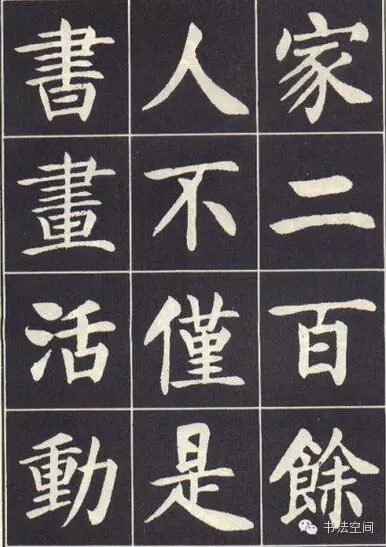 家二百餘
人不僅是
書畫活動
书法空间